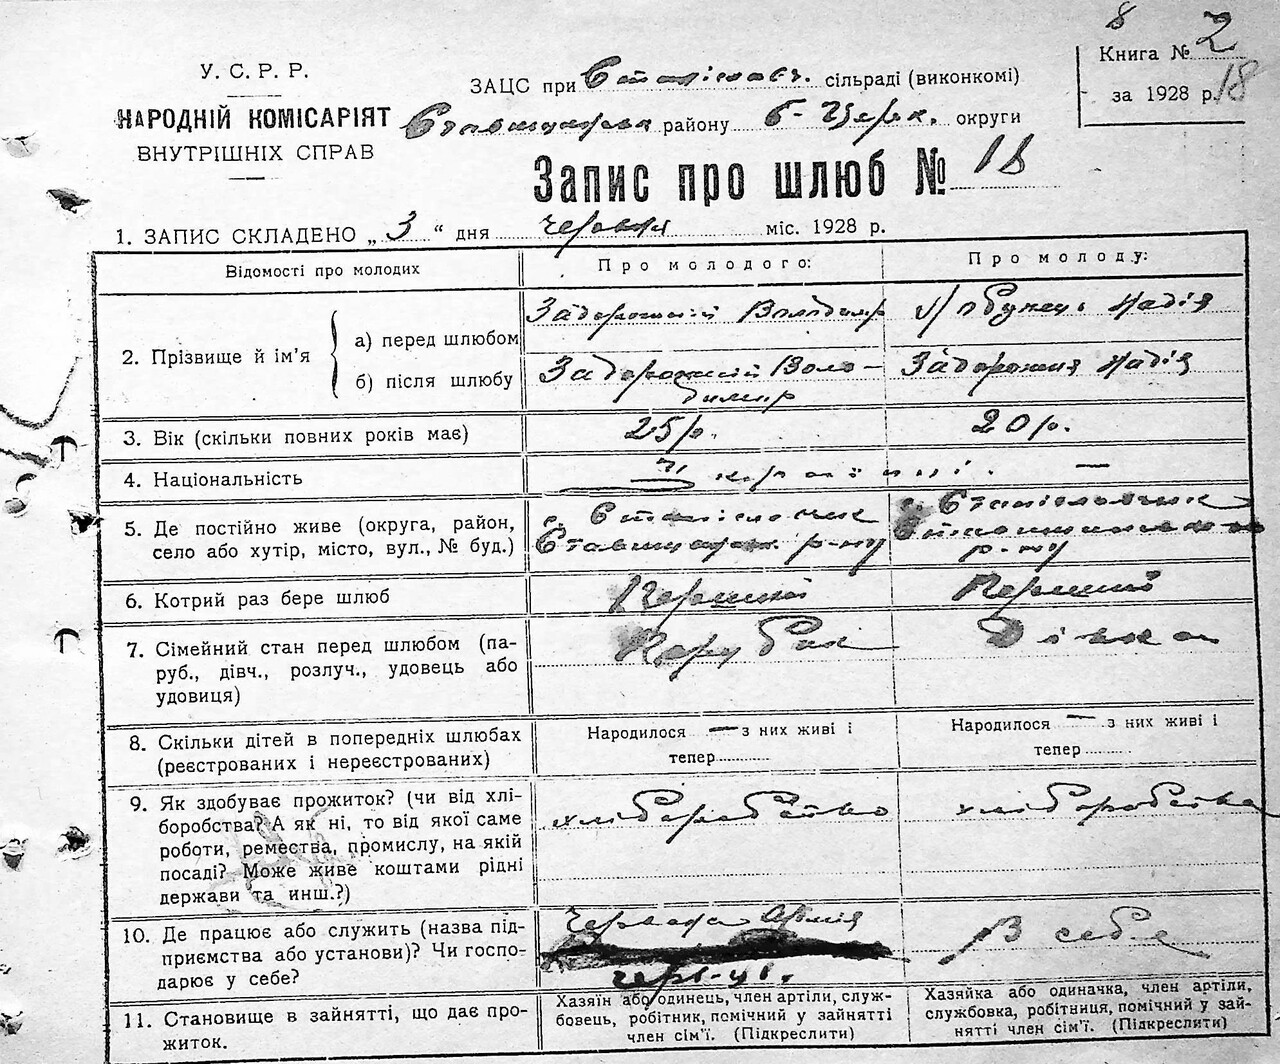 8
У. С. Р. Р.
НАРОДНІЙ КОМІСАРІЯТ
ВНУТРІШНІХ СПРАВ
ЗАЦС при Станіславч. сільраді (виконкомі)
району Б-Церк. округи
Книга № 2
за 1928 р. 18
Запис про шлюб № 18
1. ЗАПИС СКЛАДЕНО „3“ дня червня міс. 1928 р.
Відомості про молодих
Про молодого:
Про молоду:
2. Прізвище й ім’я
а) перед шлюбом
Задорожній Володимр
Надія
б) після шлюбу
Задорожній Воло-
димир
Задорожня Надія
3. Вік (скільки повних років має)
25 р.
20 р.
4. Національність
—
5. Де постійно живе (округа, район,
село або хутір, місто, вул., № буд.)
с.
р-ну
с.
р-ну
6. Котрий раз бере шлюб
Перший
Перший
7. Сімейний стан перед шлюбом (па-
руб., дівч., розлуч., удовець або
удовиця)
Парубок
Дівка
8. Скільки дітей в попередніх шлюбах
(реєстрованих і нереєстрованих)
Народилося — з них живі і
тепер
Народилося — з них живі і
тепер
9. Як здобуває прожиток? (чи від хлі-
боробства? А як ні, то від якої саме
роботи, ремества, промислу, на якій
посаді? Може живе коштами рідні
держави та инш.?)
10. Де працює або служить (назва під-
приємства або установи)? Чи госпо-
дарює у себе?
Армія
В себе
11. Становище в зайнятті, що дає про-
житок.
Хазяїн або одинець, член артілі, служ-
бовець, робітник, помічний у зайнятті
член сім’ї. (Підкреслити)
Хазяйка або одиначка, член артілі,
службовка, робітниця, помічний у зай-
нятті член сім’ї. (Підкреслити)